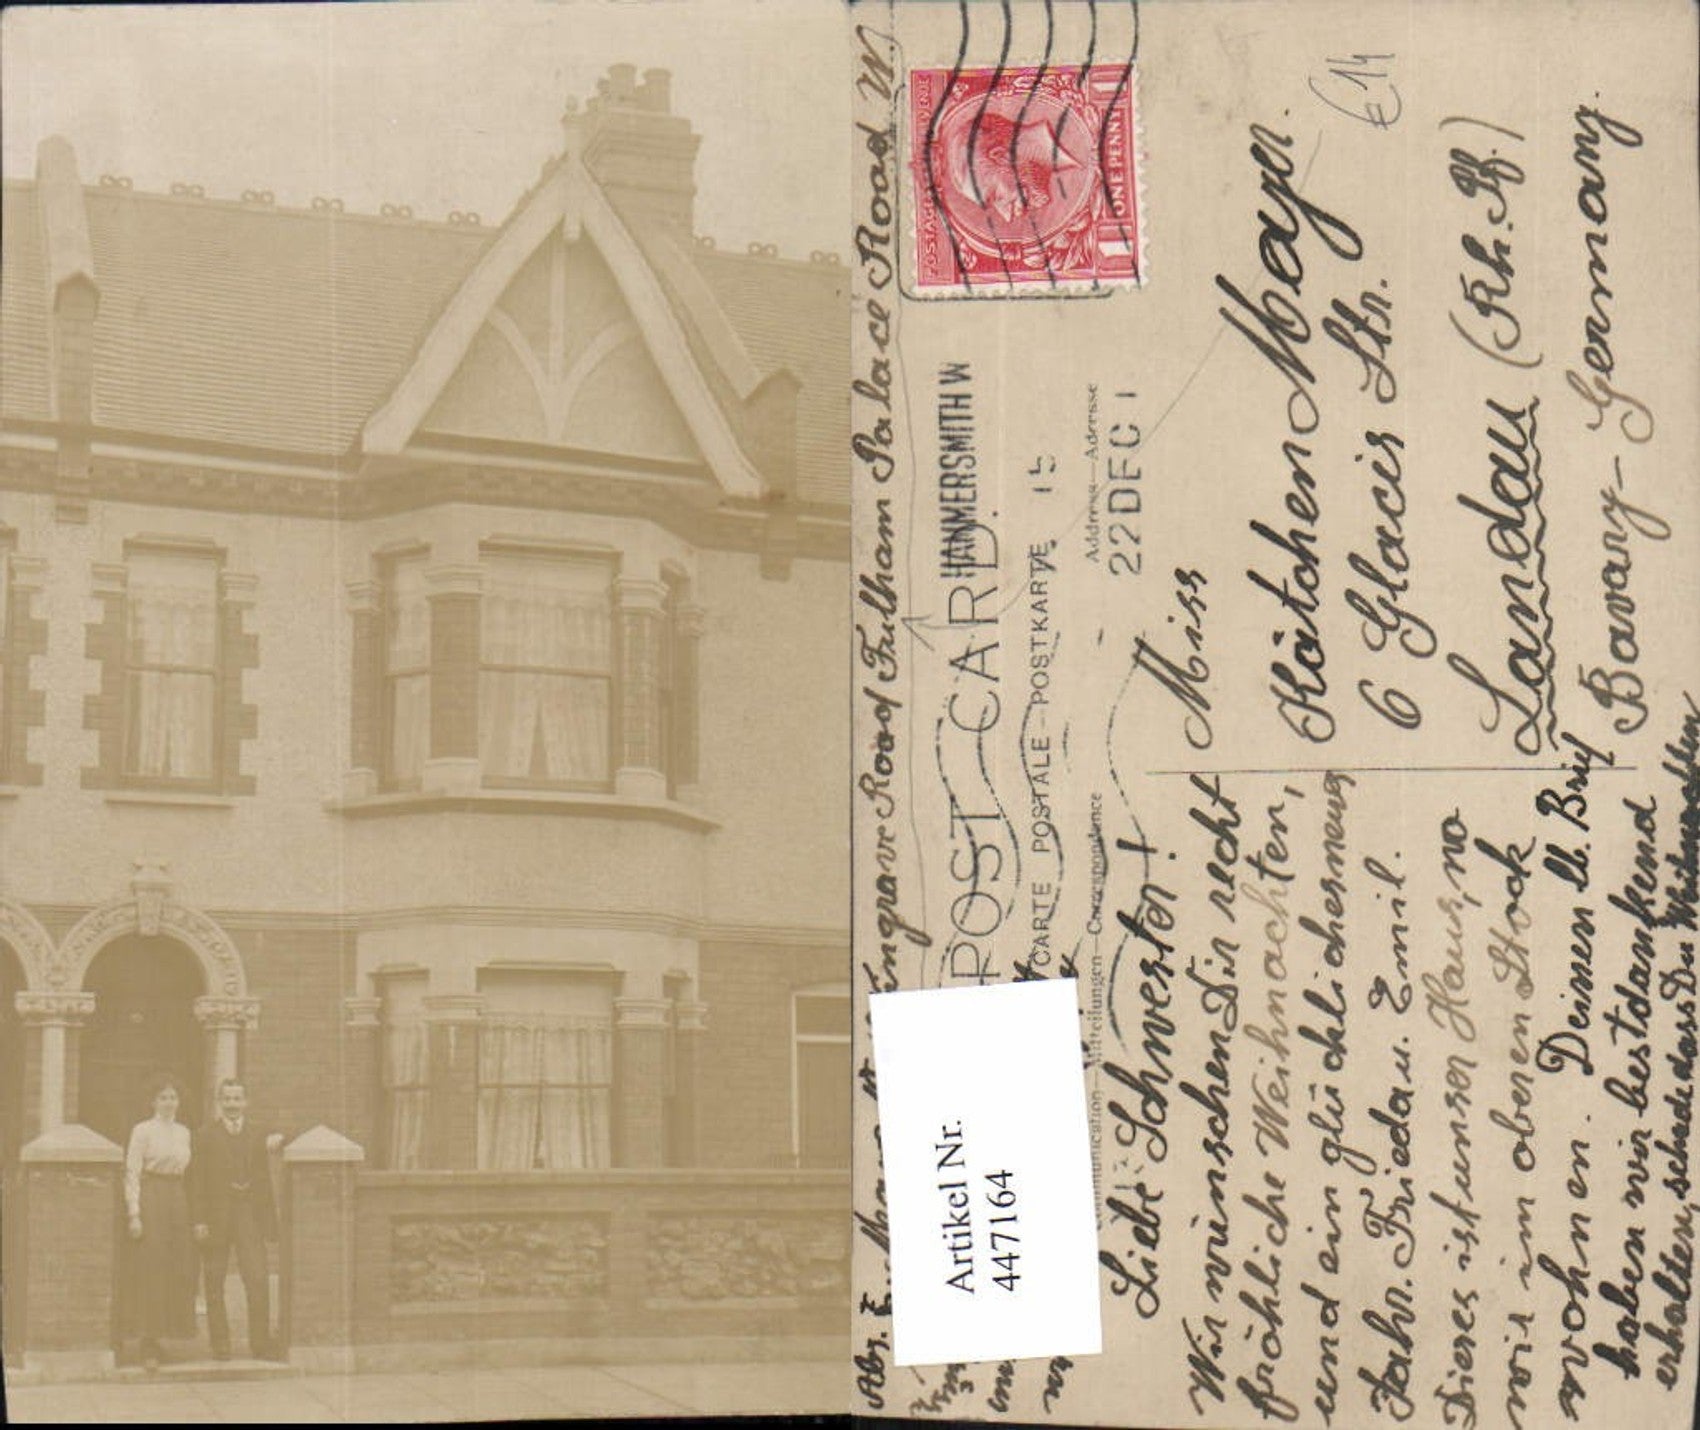 Abs.
Tangrave Road Fulham Palace Road W.
POST CARD.
HAMMERSMITH W
CARTE POSTALE–POSTKARTE
15
Correspondence
Address—Adresse
22 DEC 1
POSTAGE
ONE PENNY
1 1
€ 14
Artikel Nr.
447164
Miss
Kätchen Mayer.
6 Glacis Str.
Landau (Rh. Pf.)
Bavary – Germany.
Liebe Schwester!
Wir wünschen Dir recht
fröhliche Weihnachten,
und ein glückliches neues
Jahr. Frieda u. Emil.
Dieses ist unser Haus, wo
wir im oberen Stock
wohnen. Deinen lb. Brief
haben wir bestdankend
erhalten, schade dass Du Weihnachten